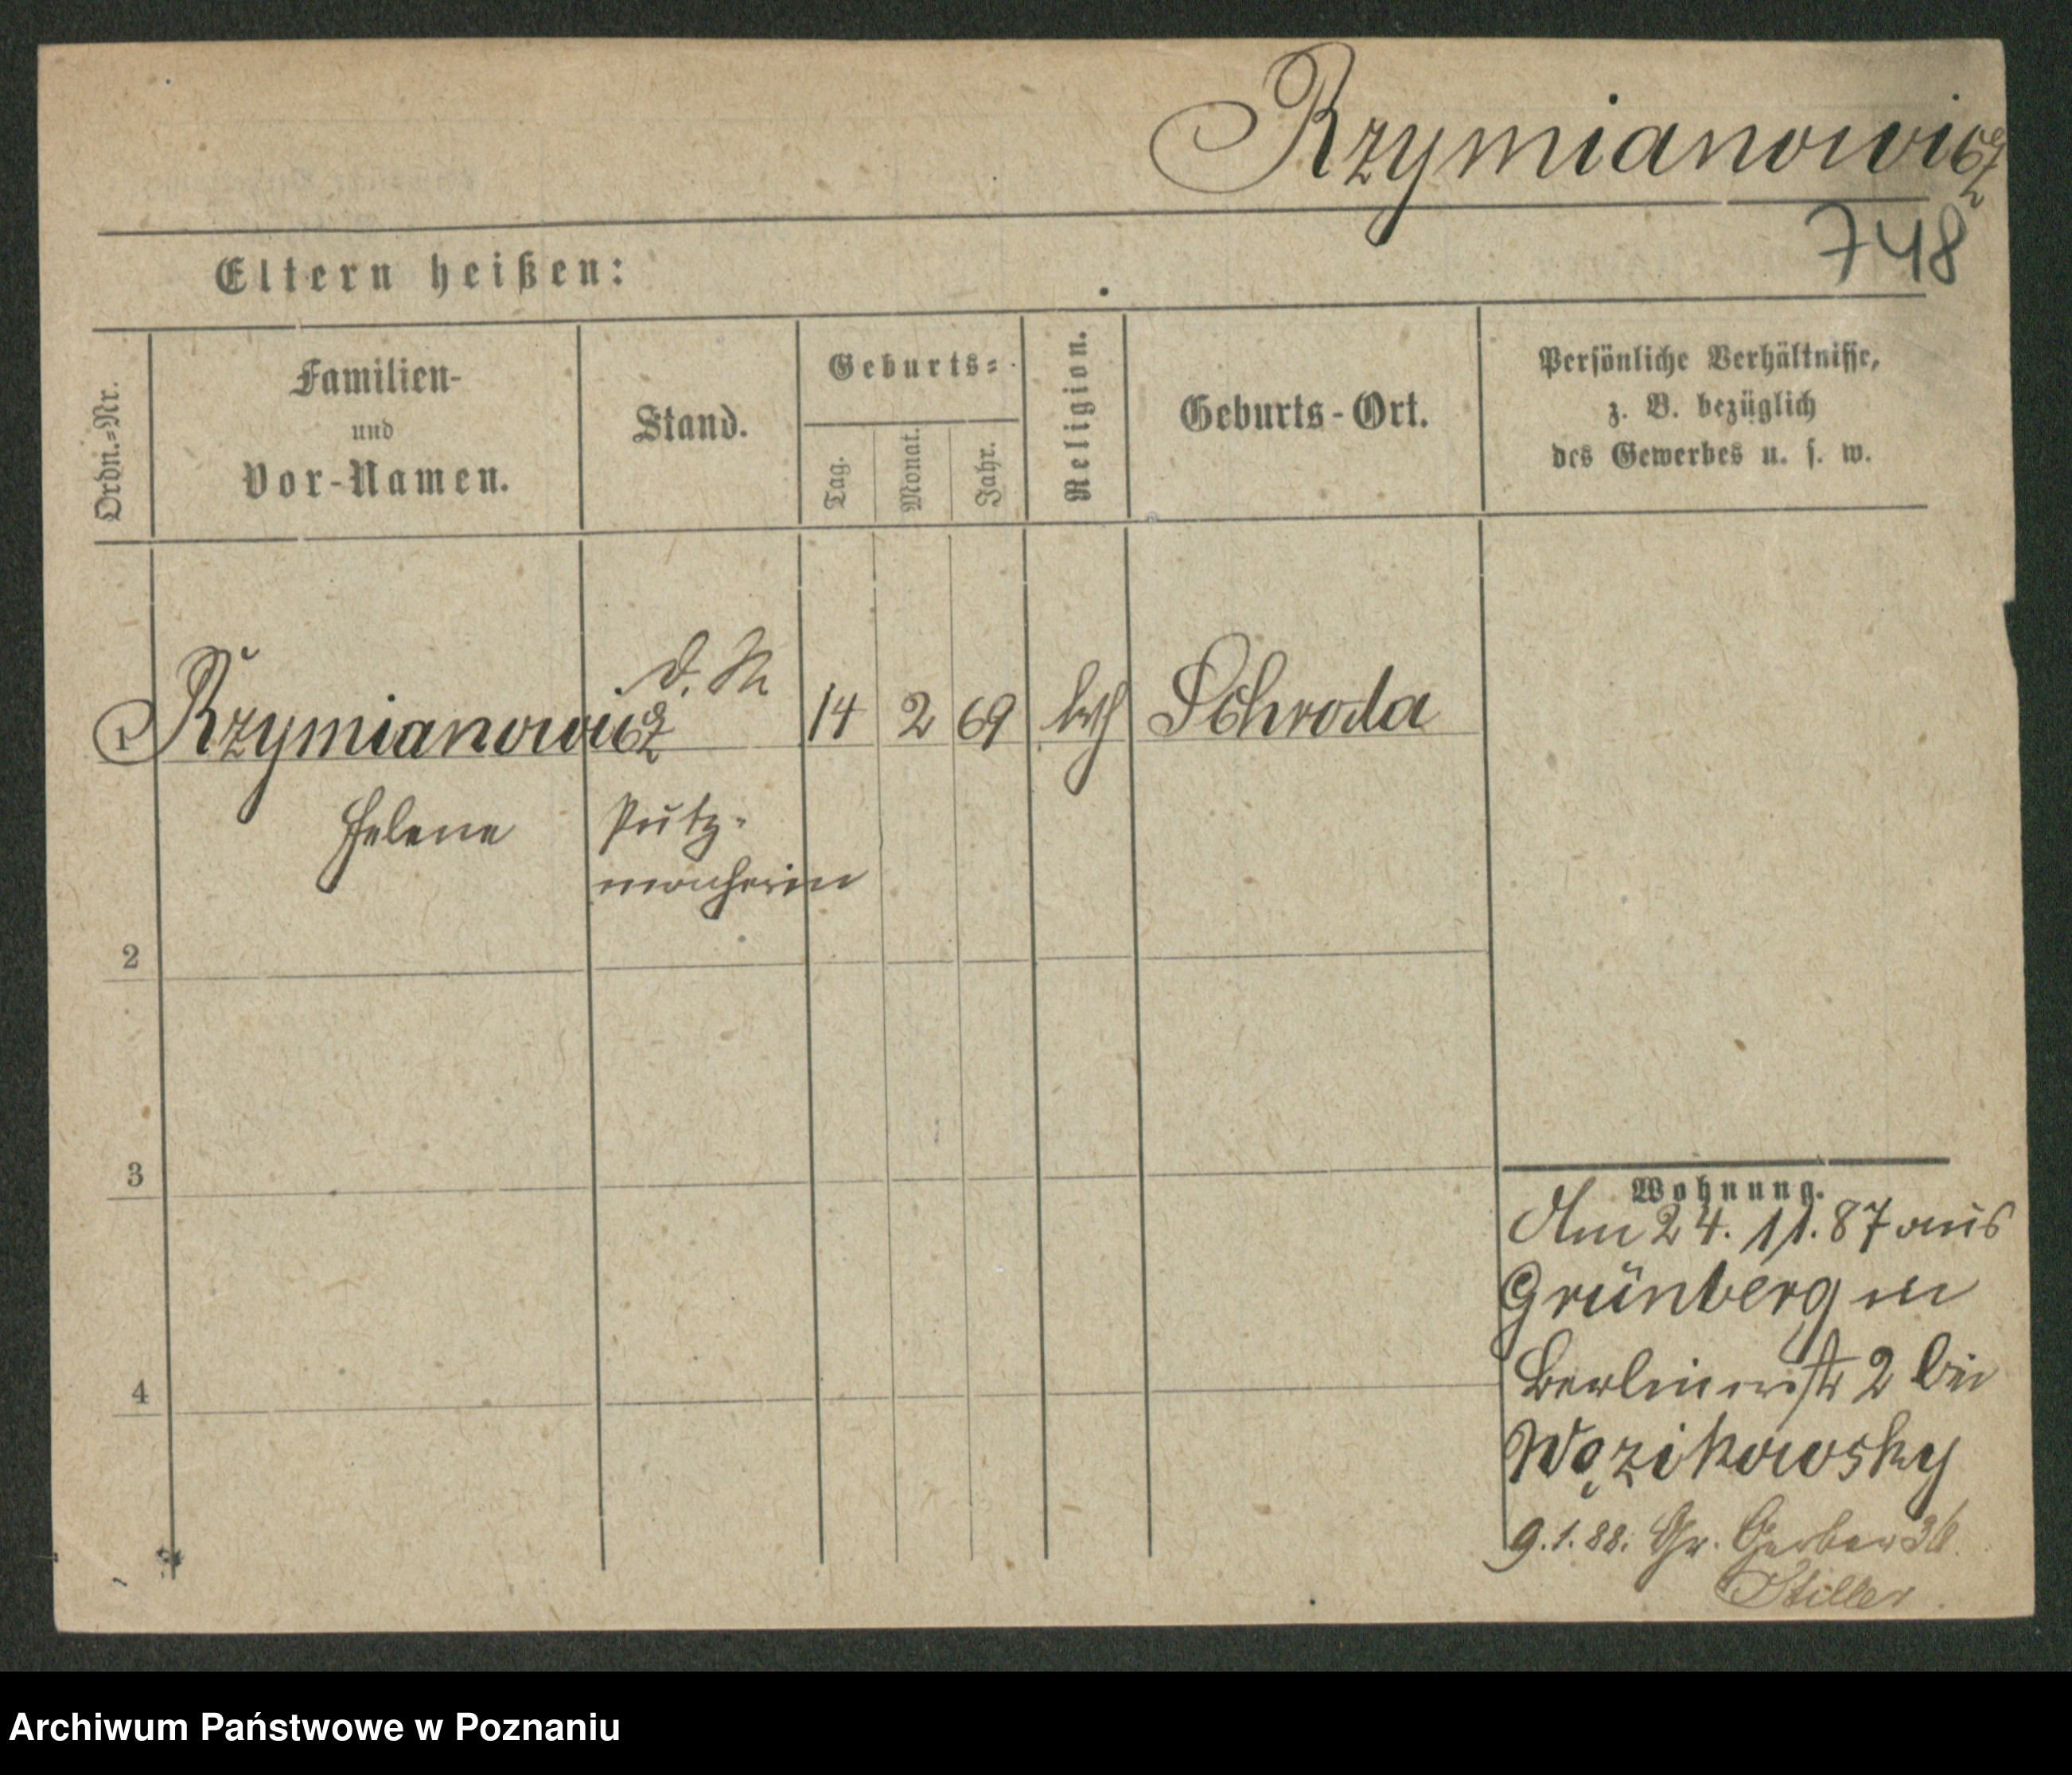 Rzymianowicz
748
Eltern heißen:
Ordn.-Nr.
Familien-
und
Vor-Namen.
Stand.
Geburts-
Tag.
Monat.
Jahr.
Religion.
Geburts-Ort.
Persönliche Verhältnisse,
z. B. bezüglich
des Gewerbes u. s. w.
1 Rzymianowicz 14 2 69 kth Schroda
Helene
Putz-
macherin
2
3
4
Wohnung.
Am 24. 11. 87 aus
Grünberg in
Berlinerstr 2 bei
Węzikowsky
9.1.88. Gr. Gerber 36.
Stiller
Archiwum Państwowe w Poznaniu